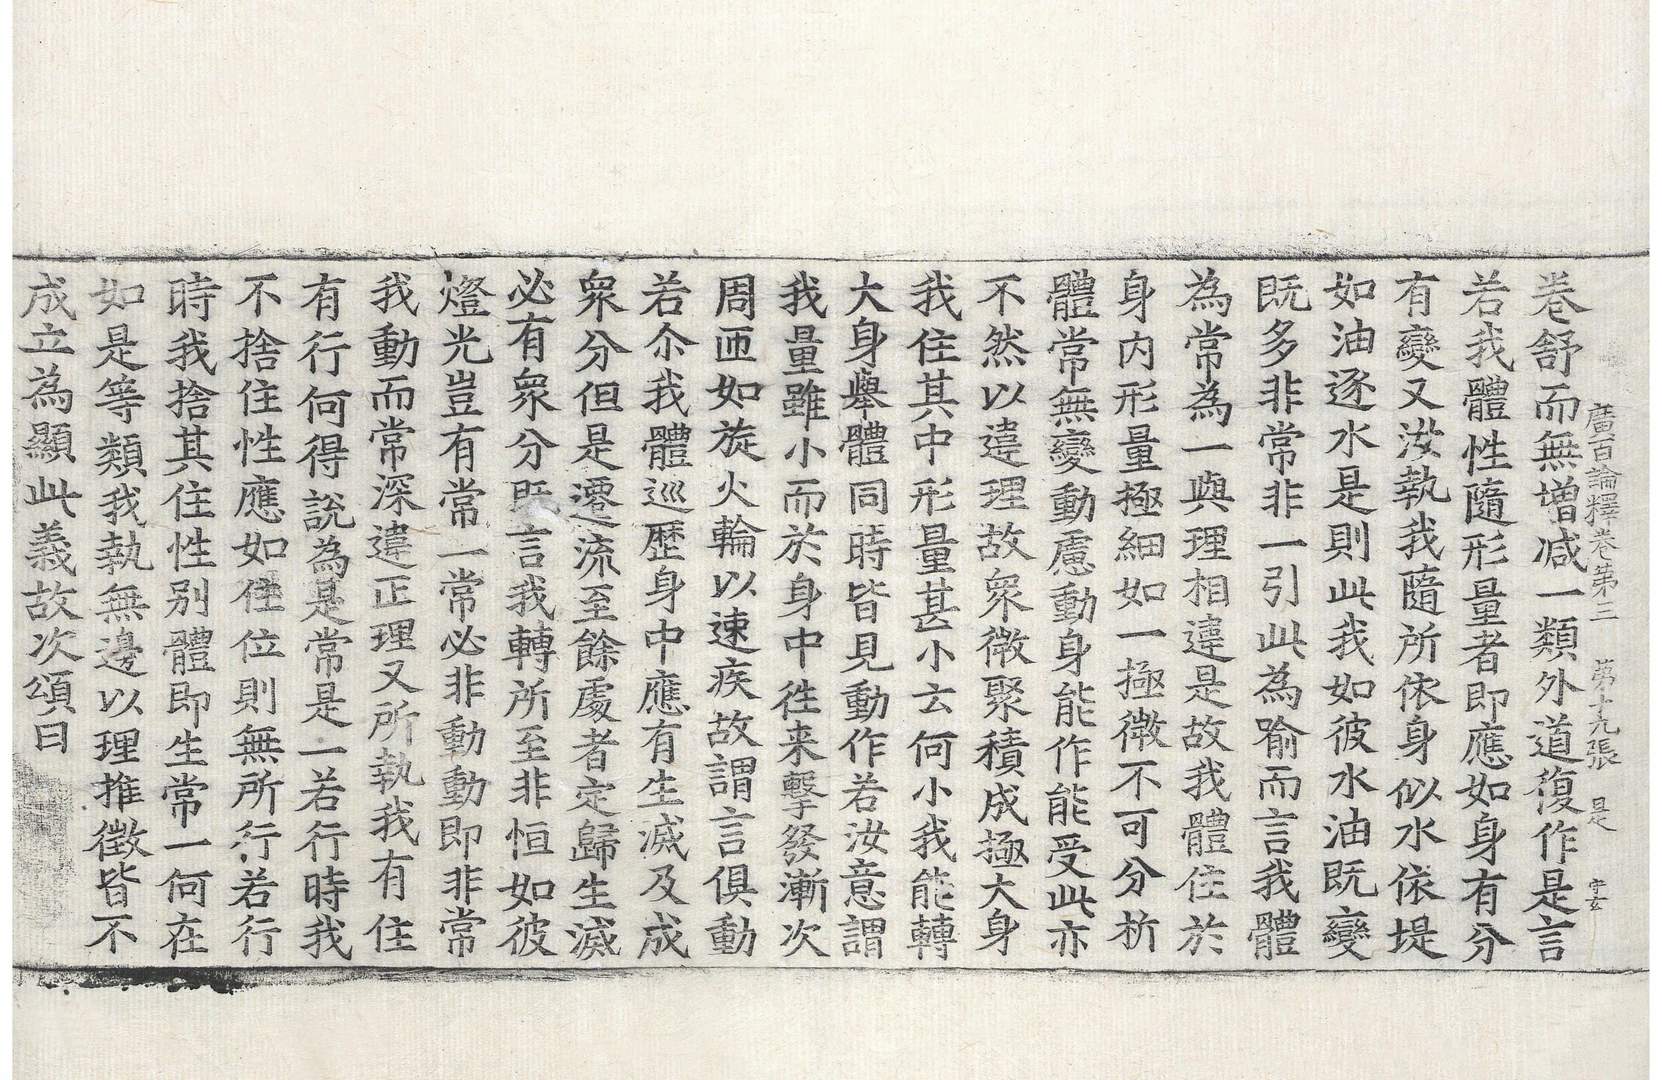 廣百論釋卷第三 第十九張 是
卷舒而無增減一類外道復作是言
若我體性隨形量者即應如身有分
有變又汝執我隨所依身似水依堤
如油逐水是則此我如彼水油既變
既多非常非一引此為喻而言我體
為常為一與理相違是故我體住於
身內形量極細如一極微不可分析
體常無變動慮動身能作能受此亦
不然以違理故衆微聚積成極大身
我住其中形量甚小云何小我能轉
大身舉體同時皆見動作若汝意謂
我量雖小而於身中往来擊發漸次
周匝如旋火輪以速疾故謂言俱動
若尒我體巡歷身中應有生滅及成
衆分但是遷流至餘處者定歸生滅
必有衆分既言我轉所至非恒如彼
燈光豈有常一常必非動動即非常
我動而常深違正理又所執我有住
有行何得說為是常是一若行時我
不捨住性應如住位則無所行若行
時我捨其住性別體即生常一何在
如是等類我執無邊以理推徵皆不
成立為顯此義故次頌曰